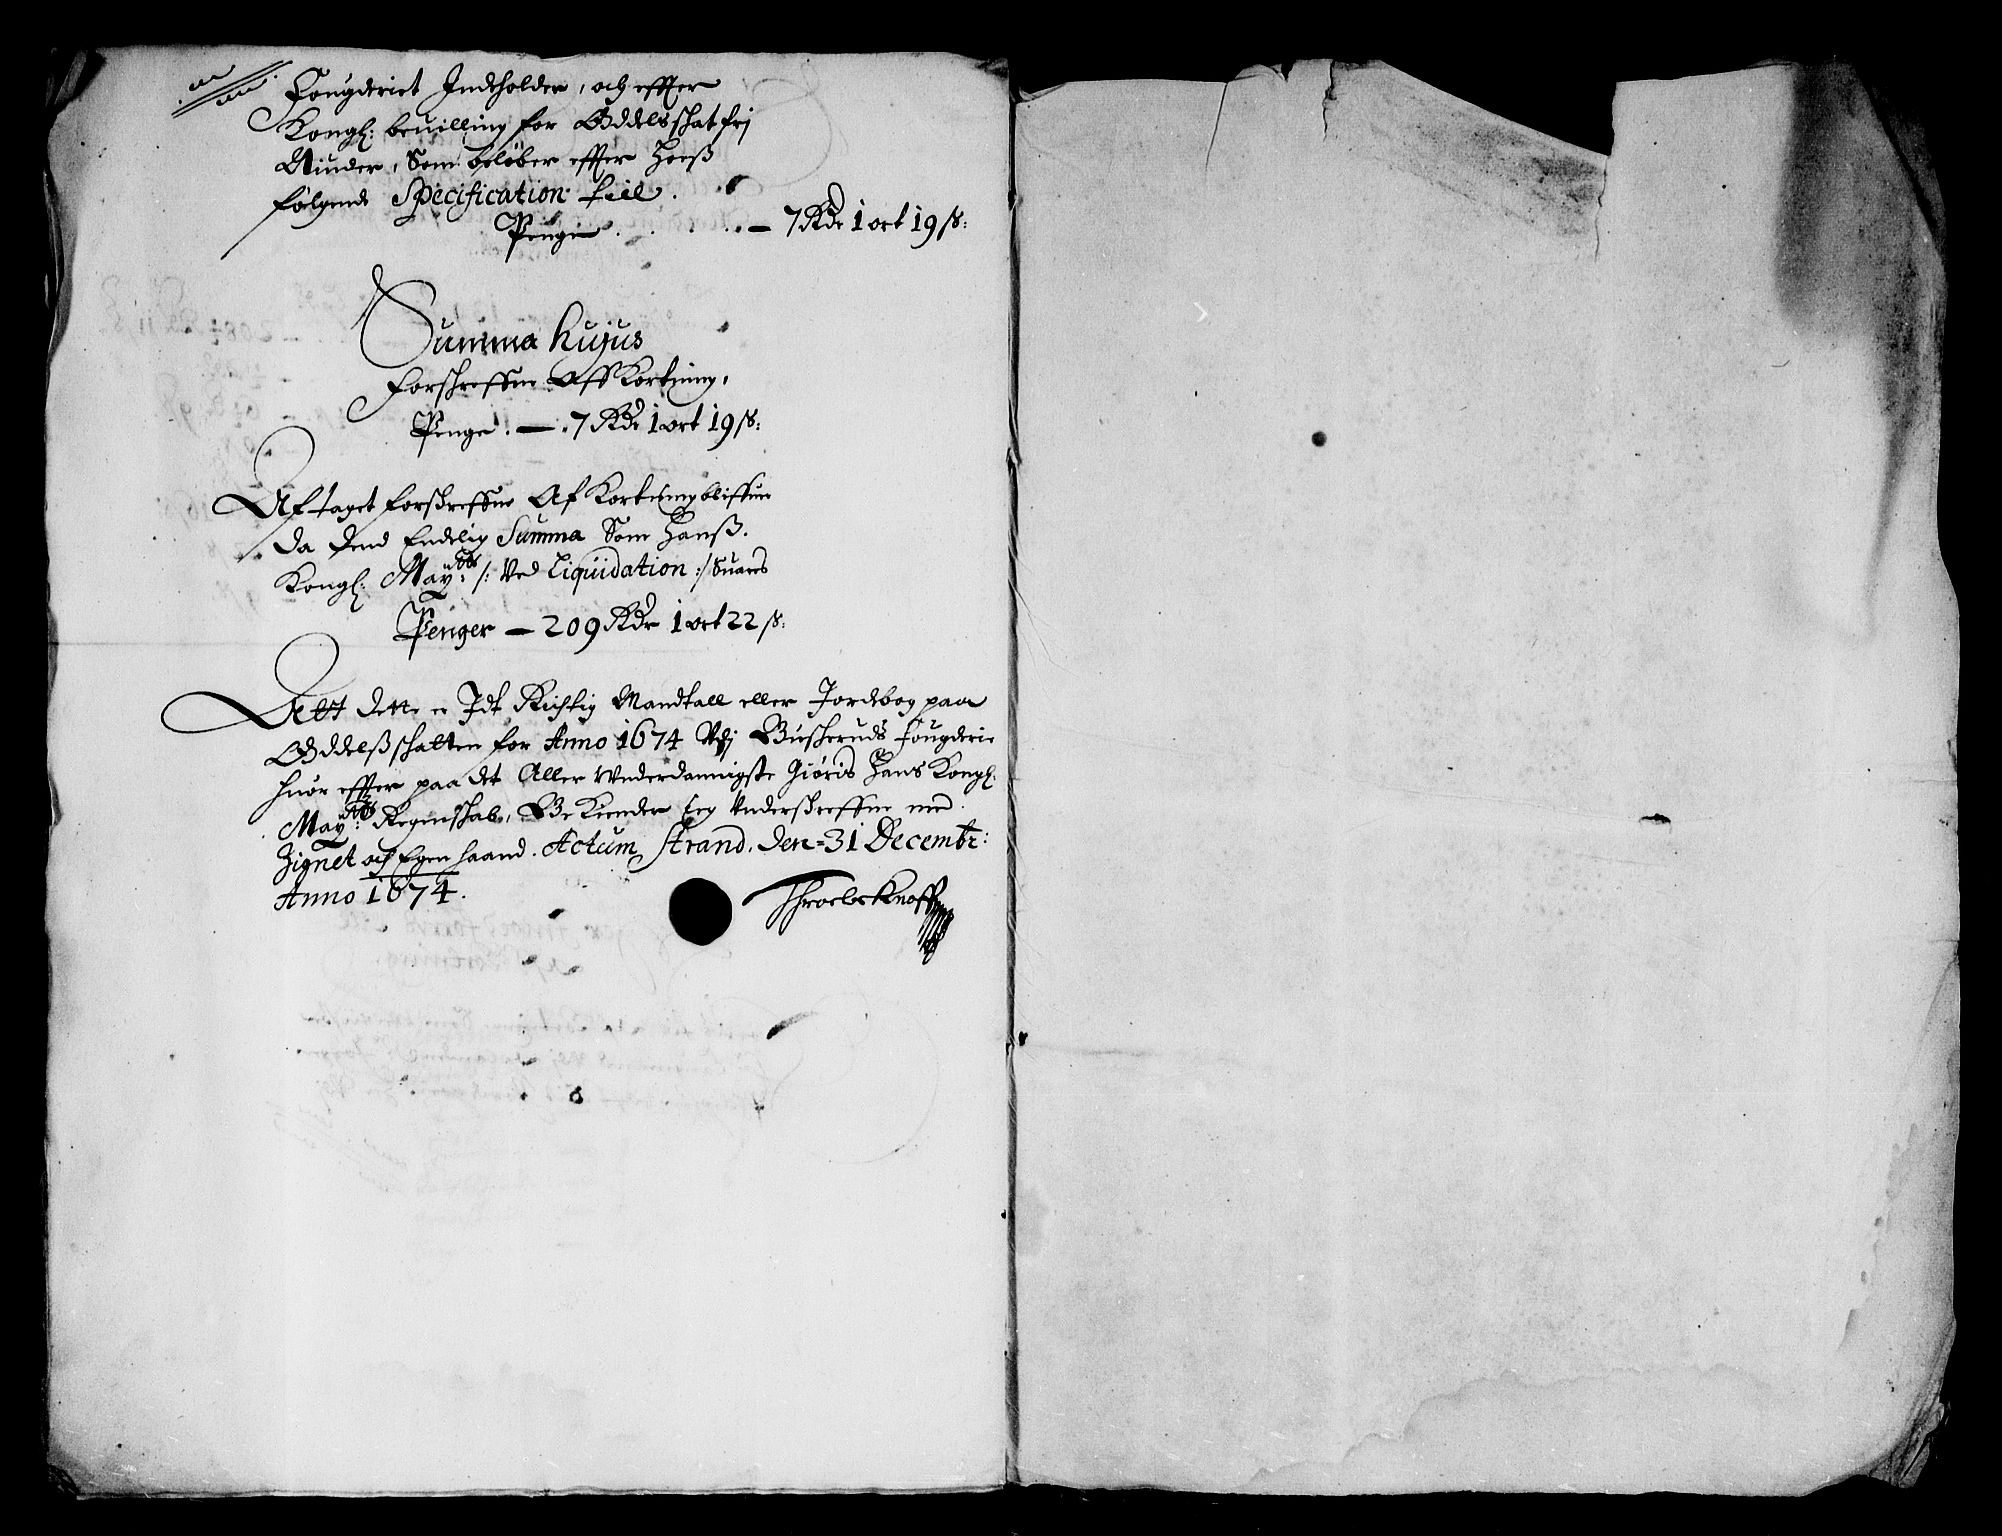 Fougderiet Indeholder, och effter
Kongl: beuilling for Oddelsschat frj
Niuder, Som beløber effter Hoeß
følgende Specification till.
Penge . . . . . — 7 Rdr 1 ort 19 ß:
Summa hujus
Forschreffne Aff Kortning,
Penge . — . 7 Rdr 1 ort 19 ß:
Aftaget forschreffne Af Kortning bliffuer
da dend Endelig Summa Som Hanß.
Kongl: Maytts: /: Ved Liquidation :/ Suares
Penger — 209 Rdr 1 ort 22 ß:
Att dette er Idt Richtig Mandtall eller Jordebog paa
Oddelßschatten for Anno 1674 Vdj Buscheruds Fougderie
huor effter paa det Aller Vnderdannigste Giøris Hans Kongl:
Maytts: Regenschab, Be Kiender Jeg Vnderschreffne med
Zignet och Egen haand. Actum Strand, den 31 Decembr:
Anno 1674.
Throels Knoff